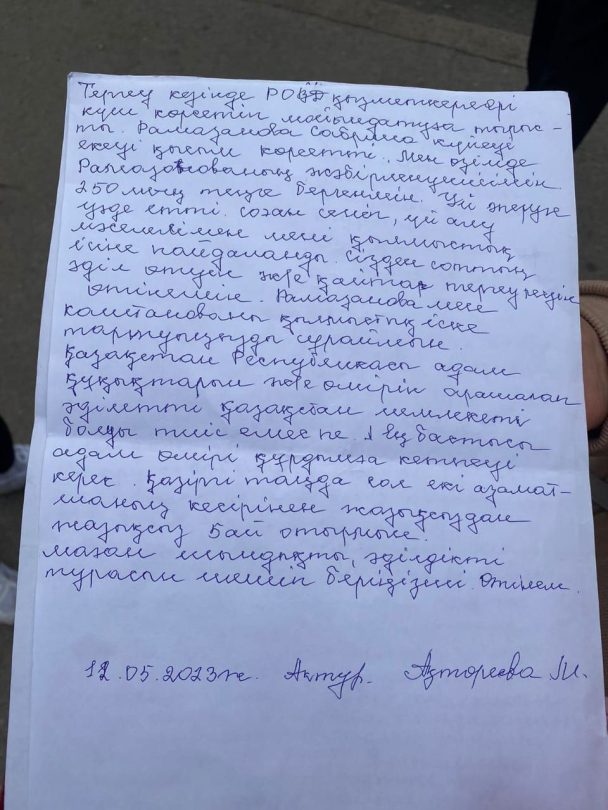 Тергеу кезінде РОВД қызметкерлері
күш көрсетіп мойындатуға тырыс-
ты. Рамазанова Сабрина күйеуі
екеуі қысым көрсетті. Мен өзімде
Рамазанованың жәбірленушісімін.
250 мың теңге бергенмін. Үй
үйде етті. соған сеніп, үй алу
мәселесімен мені қылмыстық
ісіне пайдаланды. Сізден соттың
әділ өтуін және қайтар тергеу
өтінемін. Рамазанова мен
Каштанованы қылмыстық іске
тартуыңызды сұраймын.
Қазақстан Республикасы адам
құқықтарын және өмірін арашалап
әділетті Қазақстан мемлекеті
болуы тиіс емес пе. Ең бастысы
адам өмірі құрдымға кетпеуі
керек. Қазіргі таңда сол екі азамат-
шаның кесірінен жазықсыздан
жазықсыз 5 ай отырмын.
маған шындықты, әділдікті
турасын шешіп беріңізші. Өтінем.
12.05.2023ж. Азтореева М.